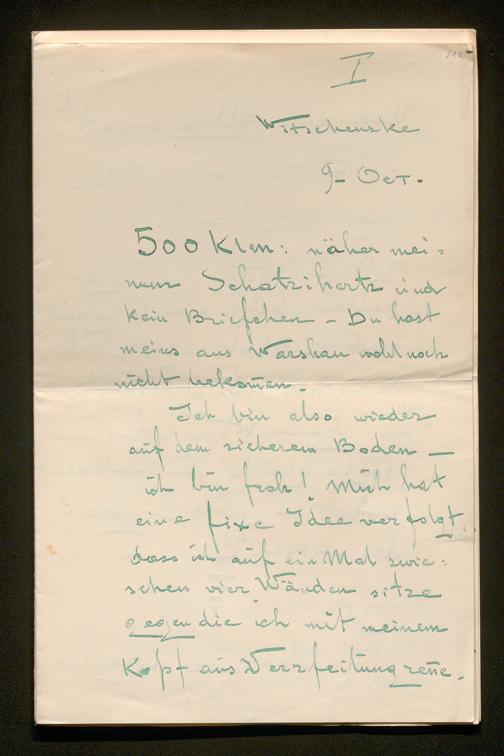 112
I
Witschenske
9- Oct.
500 Klm: näher mei=
nem Schatzihertz und
kein Briefchen - Du hast
meins aus Warshau wohl noch
nicht bekom̄en.
Ich bin also wieder
auf dem sicherem Boden —
ich bin froh! Mich hat
eine fixe Idee verfolgt,
dass ich auf ein Mal zwie=
schen vier Wänden sitze
gegen die ich mit meinem
Kopf aus Verzfeitung ren̄e.